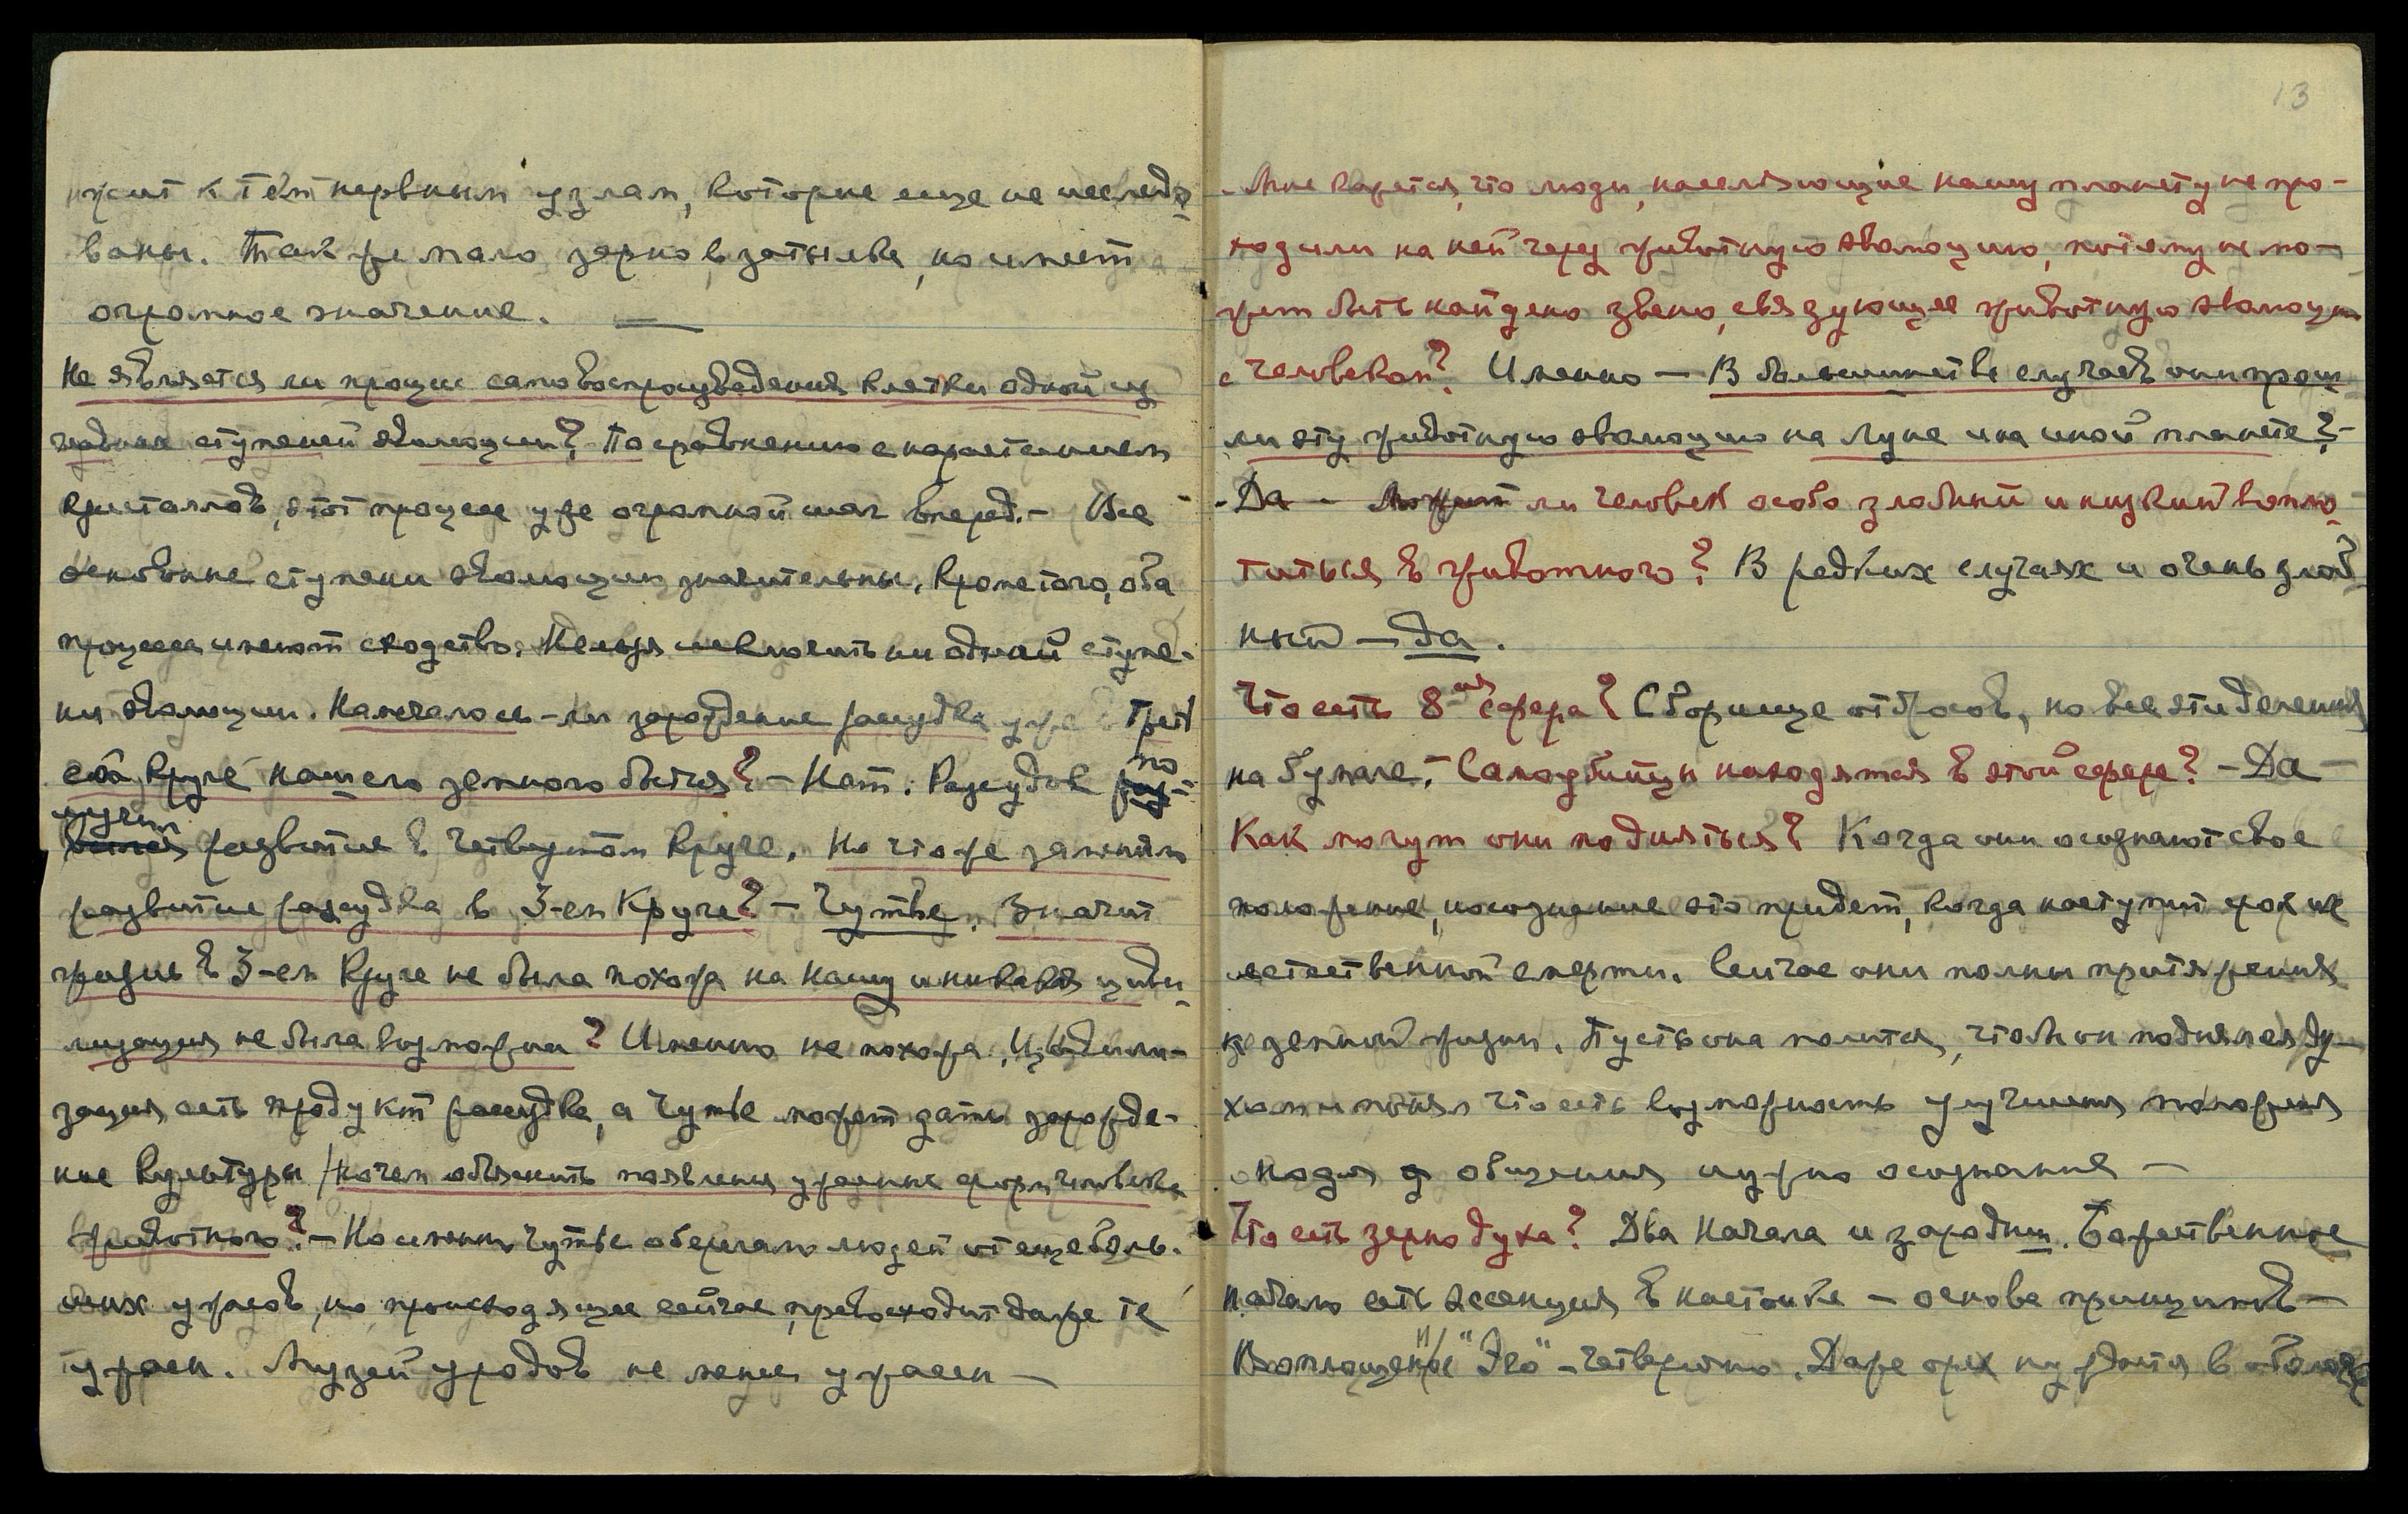 жит к тем нервным узлам, которые еще не исследо-
ваны. Так же мало зерно в затылке, но имеет
огромное значение. —
Не является ли процесс самовоспроизведения клетки одной из
ступеней эволюции? По сравнению с нарастанием
кристаллов, этот процесс уже огромный шаг вперед. – Все
основные ступени эволюции значительны, кроме того, оба
процесса имеют сходство. Нельзя исключить ни одной ступе-
ни эволюции. Намечалось-ли зарождение рассудка уже в Треть
ем Круге нашего земного бытия? – Нет. Рассудок по-
лучил развитие в четвертом Круге. Но что же заменяло
развитие рассудка в 3-ем Круге? – Чутье. Значит
жизнь в 3-ем Круге не была похожа на нашу и никакая циви-
лизация не была возможна? Именно не похожа. Цивили-
зация есть продукт рассудка, а чутье может дать зарожде-
ние культуры / Но чем объяснить появления ужасных форм человека
животного? – Но именно чутье оберегало людей от еще боль-
ших ужасов, но происходящее сейчас, превосходит даже те
ужасы. Музей уродов не менее ужасен —
13
Мне кажется, что люди, населяющие нашу планету не про-
ходили на ней через животную эволюцию, потому не мо-
жет быть найдено звено, связующее животную эволюцию
с человеком? Именно — В большинстве случаев они прош-
ли эту животную эволюцию на Луне и на иной планете? –
– Да – Может ли человек особо злобный и низкий вопло-
титься в животного? В редких случаях и очень злоб-
ный — да.
Что есть 8-ая сфера? Сборище отбросов, но все эти деления
на бумаге. – Самоубийцы находятся в этой сфере? – Да –
Как могут они подняться? Когда они осознают свое
положение, но осознание это придет, когда наступит срок их
естественной смерти. Сейчас они полны притяжения
к земной жизни. Пусть она молится, чтобы он поднялся ду-
хом и понял что есть возможность улучшения положения
общения нужно осознание —
Что есть зерно духа? Два Начала и зародыш. Божественное
начало есть эссенция в костяке – основа принципов —
Воплощенное "Эго" – четверично. Даже орех нуждается в оболочке